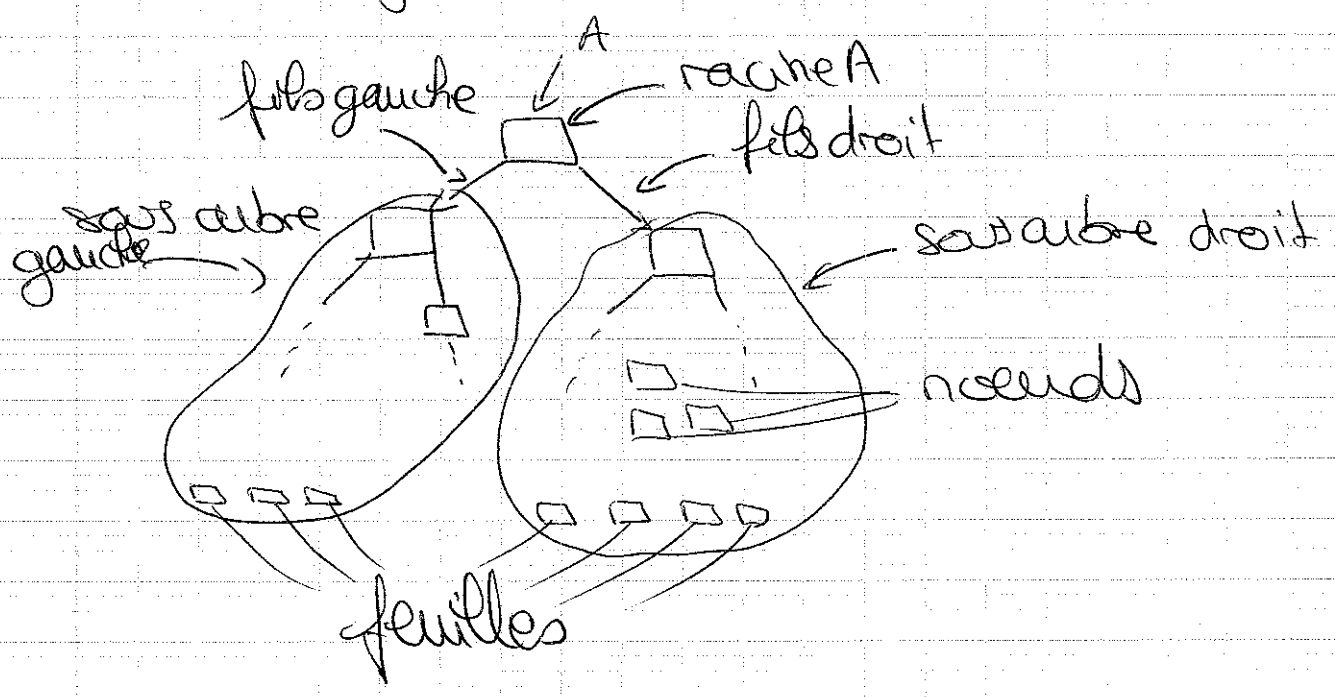 A
fils gauche
racine A
fils droit
sous arbre
gauche
sous arbre droit
noeuds
feuilles